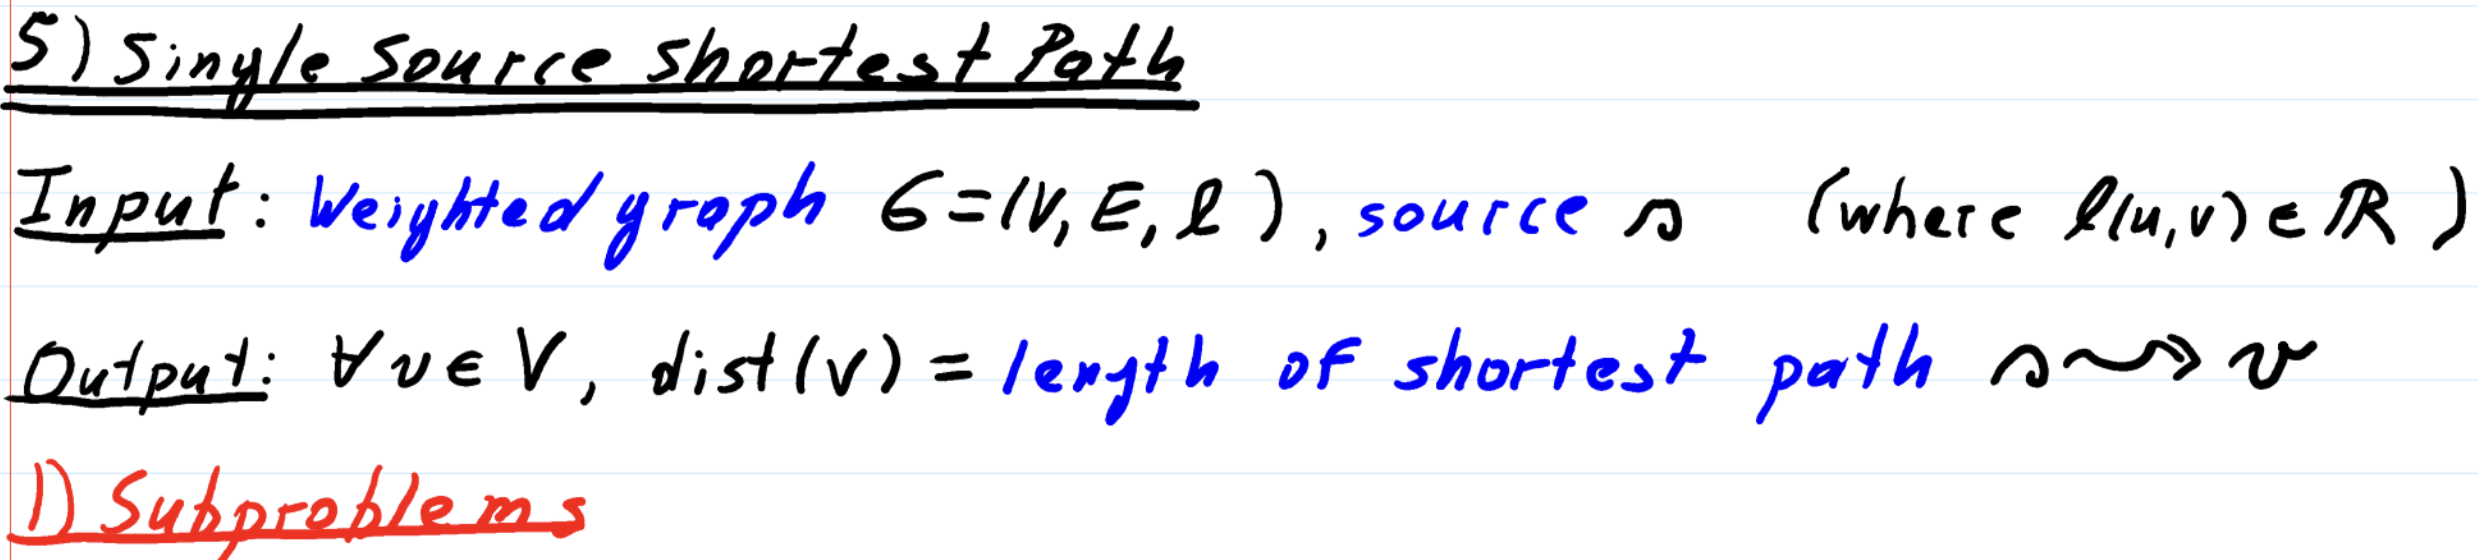 5) Single Source Shortest Path
Input: Weighted graph G=(V, E, l), source s (where l(u,v) ∈ ℝ)
Output: ∀ v ∈ V, dist(v) = length of shortest path s ⤳ v
1) Subproblems